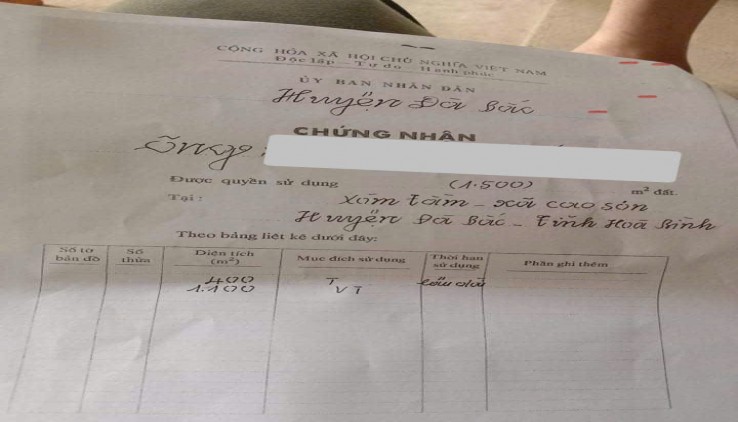 CỘNG HÒA XÃ HỘI CHỦ NGHĨA VIỆT NAM
Độc lập - Tự do - Hạnh phúc
ỦY BAN NHÂN DÂN
Huyện Đà Bắc
CHỨNG NHẬN
Ông:
Được quyền sử dụng (1.500) m² đất.
Tại: Xóm Tằm - xã cao sơn
Huyện Đà Bắc - Tỉnh Hoà Bình
Theo bảng liệt kê dưới đây:
Số tờ bản đồ Số thửa Diện tích (m²) Mục đích sử dụng Thời hạn sử dụng Phần ghi thêm
400 T Lâu dài
1.100 VT